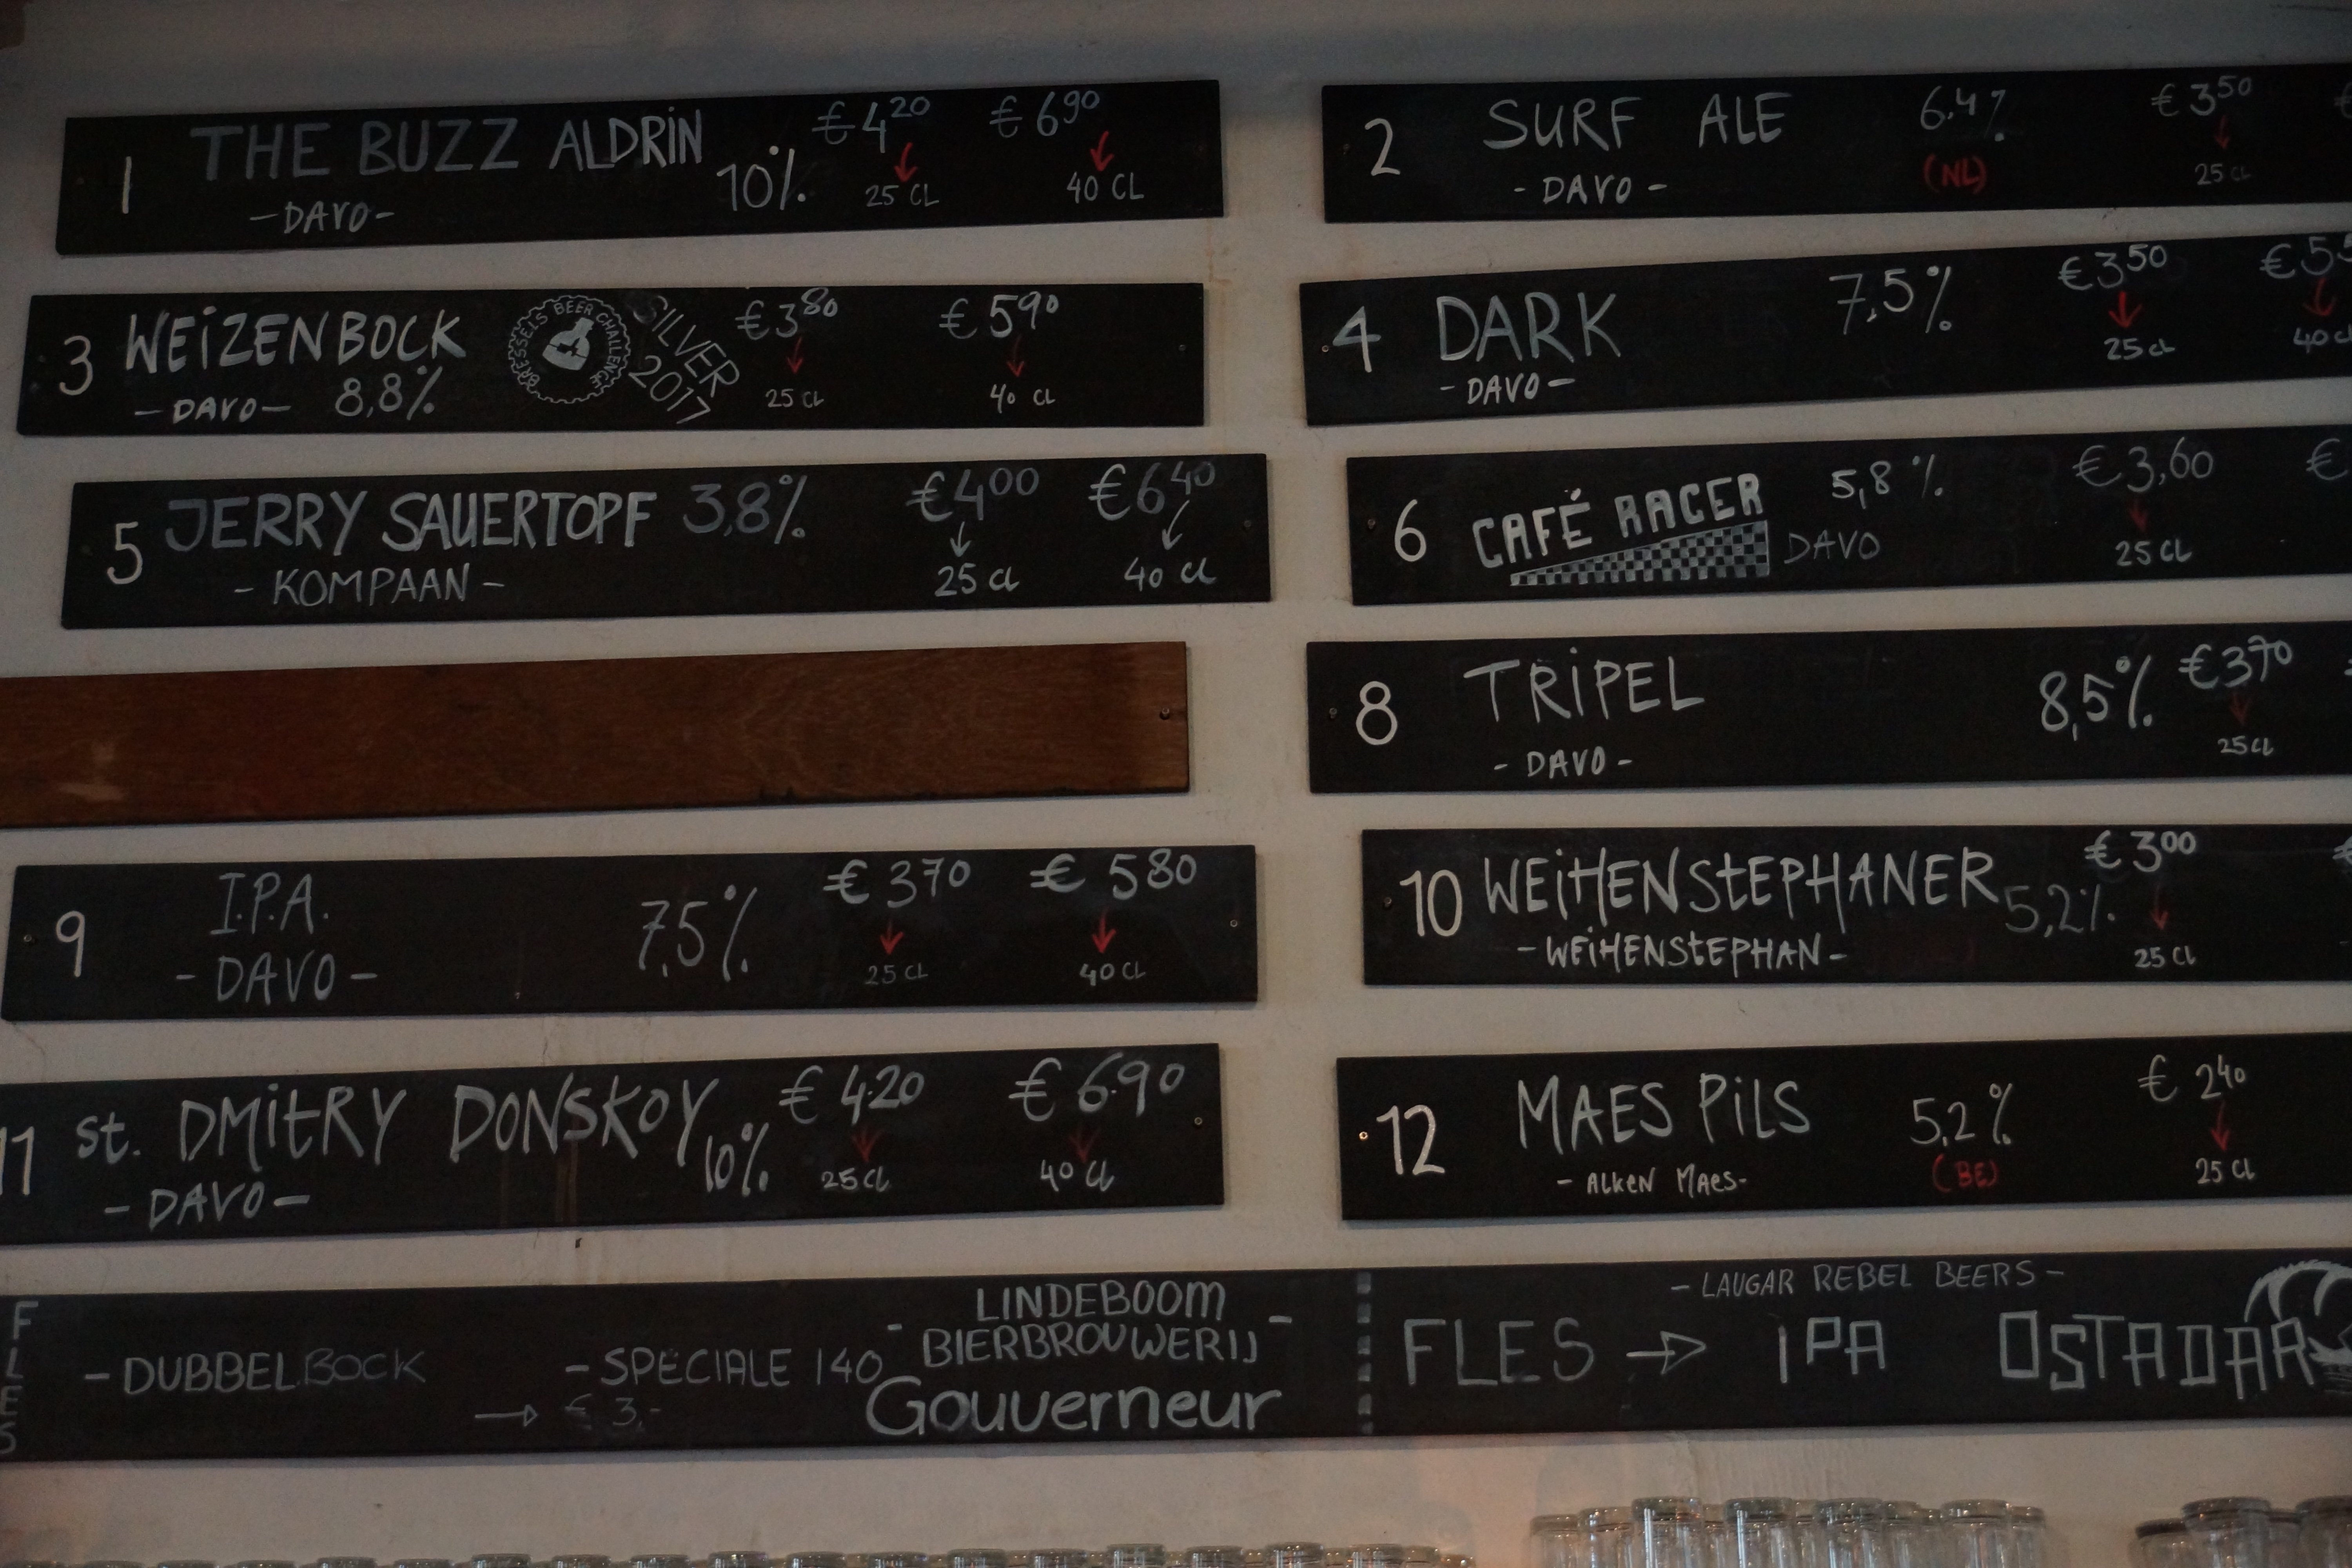 1 THE BUZZ ALDRIN 10% €4²⁰ €6⁹⁰
25 CL 40 CL
-DAVO-
2 SURF ALE 6,4% €3⁵⁰
- DAVO - (NL) 25 CL
3 WEIZENBOCK BRESSELS BEER CHAILENGE SILVER 2017 €3⁸⁰ €5⁹⁰
-DAVO- 8,8% 25 CL 40 CL
4 DARK 7,5% €3⁵⁰
-DAVO- 25 cl 40 cl
5 JERRY SAUERTOPF 3,8% €4⁰⁰ €6⁴⁰
- KOMPAAN - 25 cl 40 cl
6 CAFÉ RACER 5,8% €3,60 €
DAVO 25 CL
8 TRIPEL 8,5% €3⁷⁰
- DAVO - 25 CL
9 I.P.A. 7,5% €3⁷⁰ €5⁸⁰
- DAVO - 25 CL 40 CL
10 WEIHENSTEPHANER 5,2% €3⁰⁰
-WEIHENSTEPHAN- 25 CL
11 st. DMITRY DONSKOY 10% €4.20 €6.90
- DAVO - 25 CL 40 CL
12 MAES PILS 5,2% €2⁴⁰
- ALKEN MAES- (BE) 25 CL
FLES
- DUBBELBOCK - SPECIALE 140
→ € 3,-
- LINDEBOOM -
BIERBROUWERIJ
Gouverneur
- LAUGAR REBEL BEERS -
FLES → IPA OSTADAR